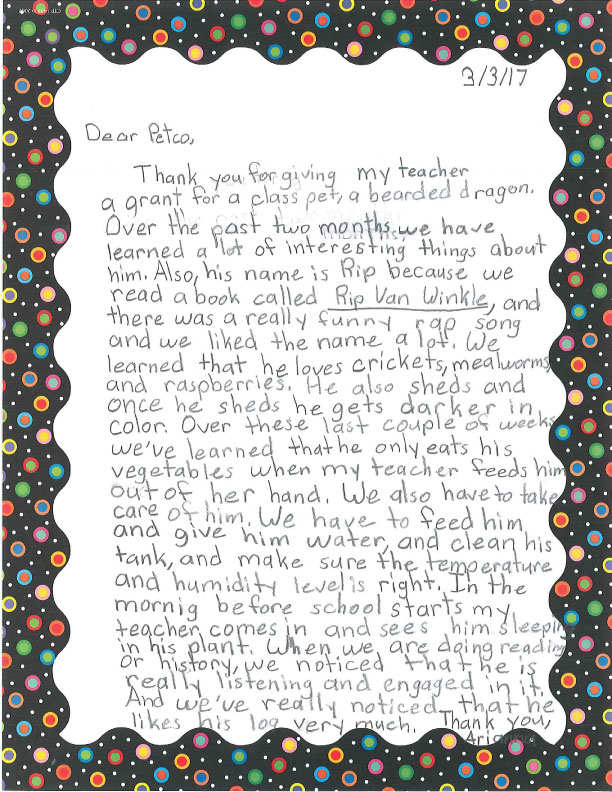 3/3/17
Dear Petco,
Thank you for giving my teacher
a grant for a class pet, a bearded dragon.
Over the past two months, we have
learned a lot of interesting things about
him. Also, his name is Rip because we
read a book called Rip Van Winkle, and
there was a really funny rap song
and we liked the name a lot. We
learned that he loves crickets, mealworms,
and raspberries. He also sheds and
once he sheds he gets darker in
color. Over these last couple of weeks
we've learned that he only eats his
vegetables when my teacher feeds him
out of her hand. We also have to take
care of him. We have to feed him,
and give him water, and clean his
tank, and make sure the temperature
and humidity level is right. In the
mornig before school starts my
teacher comes in and sees him sleeping
in his plant. When we are doing reading
or history, we noticed that he is
really listening and engaged in it.
And we've really noticed that he
likes his log very much. Thank you,